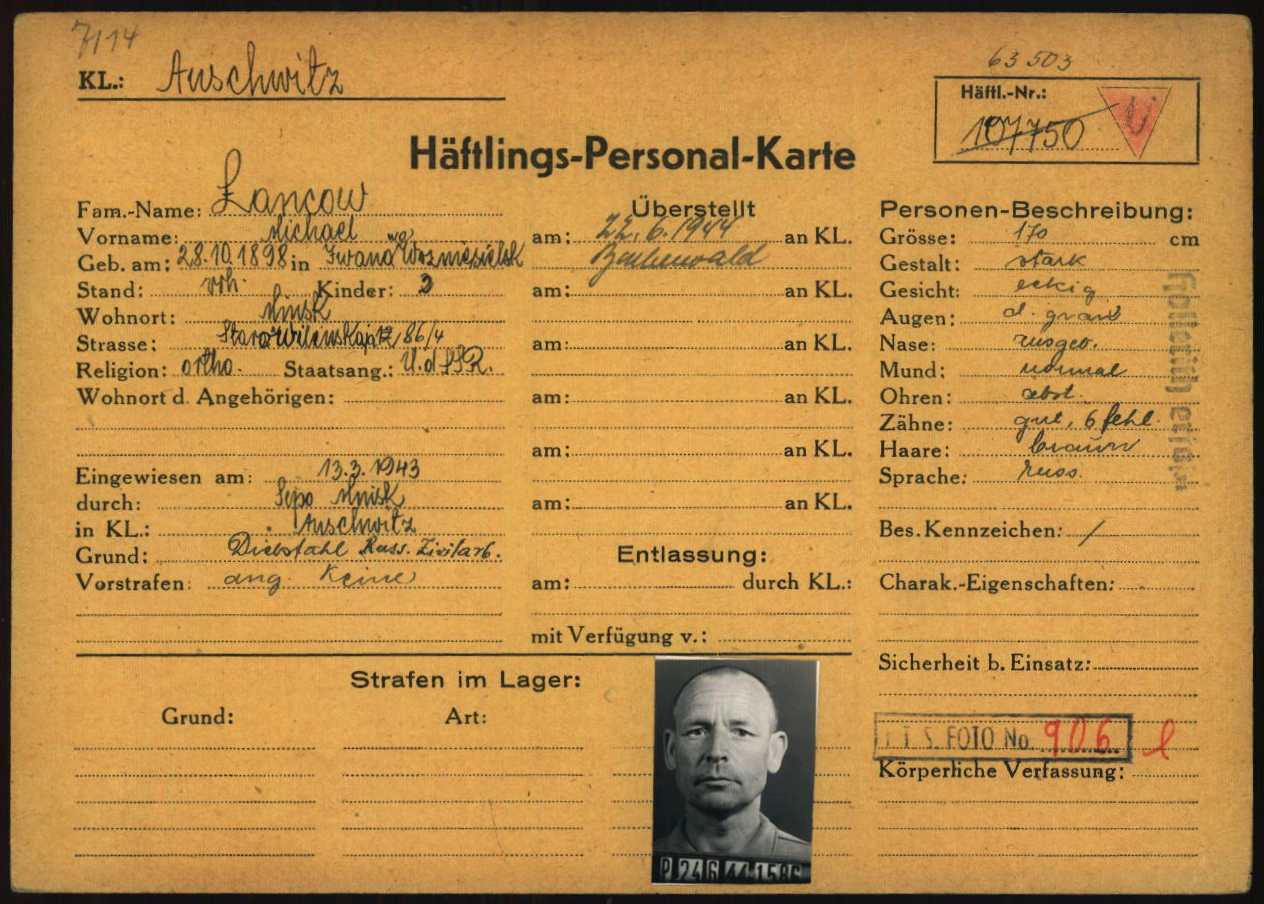 7114
KL.: Auschwitz
63503
Häftl.-Nr.:
107750
U
Häftlings-Personal-Karte
Fam.-Name: Lancow
Vorname: Michael
Geb. am: 28.10.1898 in Iwana Wozniesielsk
Stand: vrh. Kinder: 2
Wohnort: Minsk
Strasse: 86/4
Religion: ortho. Staatsang.: U.d.SSR.
Wohnort d. Angehörigen:
Eingewiesen am: 13.3.1943
durch: Sipo Minsk
in KL.: Auschwitz
Grund: Diebstahl Russ. Zivilarb.
Vorstrafen: ang. Keine
Überstellt
am: 22.6.1944 an KL.
Buchenwald
am: an KL.
am: an KL.
am: an KL.
am: an KL.
am: an KL.
Entlassung:
am: durch KL.:
mit Verfügung v.:
Personen-Beschreibung:
Grösse: 170 cm
Gestalt: stark
Gesicht: eckig
Augen: d. grau
Nase: ausgeb.
Mund: normal
Ohren: abst.
Zähne: gut, 6 fehl.
Haare: braun
Sprache: russ.
Bes. Kennzeichen: /
Charak.-Eigenschaften:
Sicherheit b. Einsatz:
I.T.S. FOTO No. 906
Körperliche Verfassung:
Hollerith erfaßt
Strafen im Lager:
Grund: Art:
P 24 6 44 1586